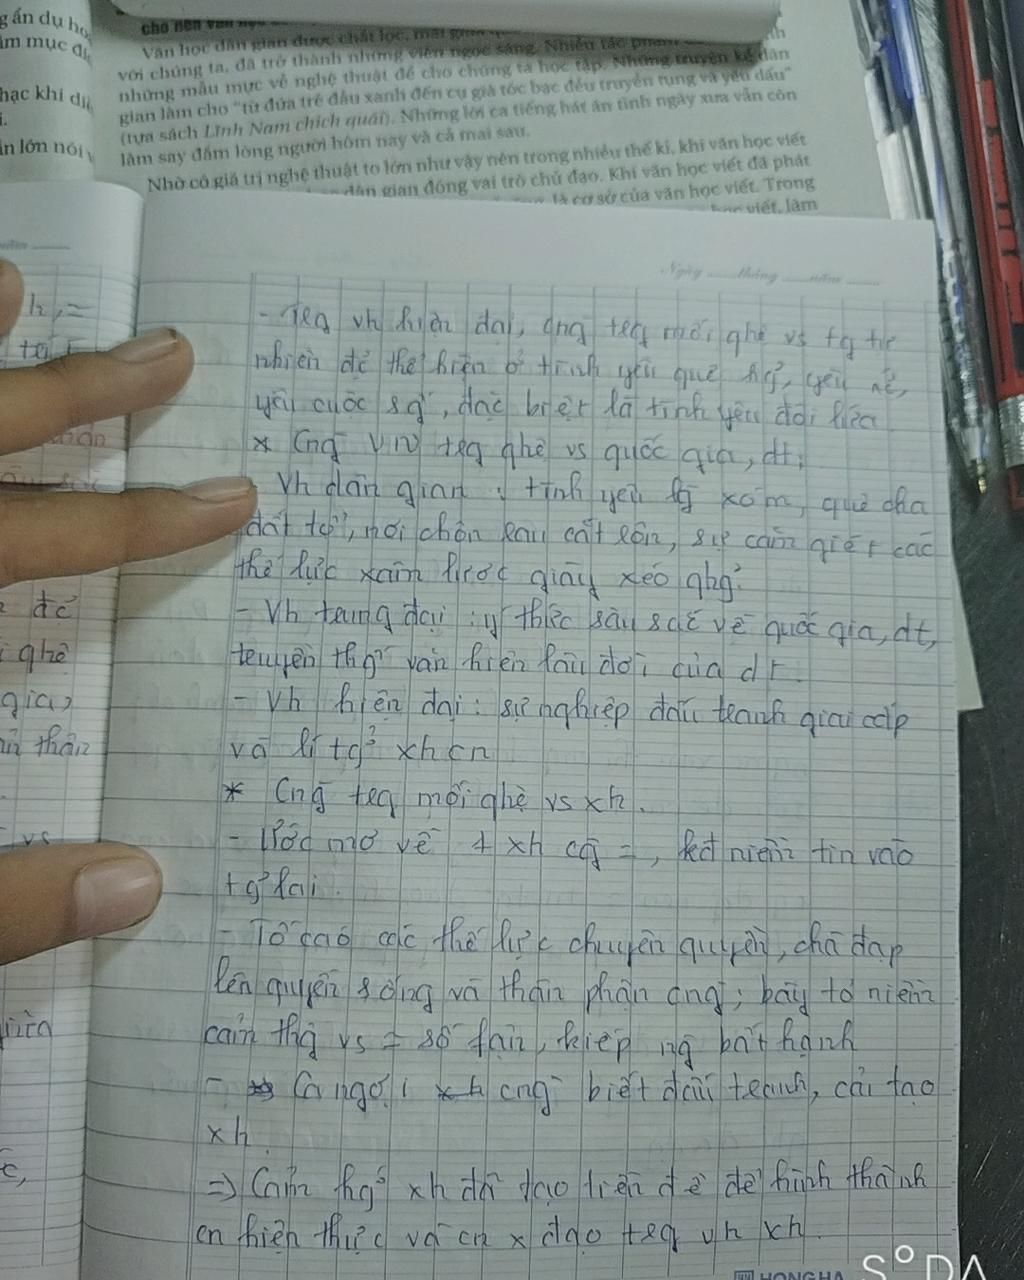 g ẩn dụ họ
ìm mục đí
hạc khí di
ần lớn nói
cho nên văn
Văn học dân gian được chắt lọc, mài
với chúng ta, đã trở thành những viên ngọc sáng. Nhiều tác phẩm
những mẫu mực về nghệ thuật để cho chúng ta học tập. Những truyện kể dân
gian làm cho "từ đứa trẻ đầu xanh đến cụ già tóc bạc đều truyền tụng và yêu dấu"
(tựa sách Lĩnh Nam chích quái). Những lời ca tiếng hát ân tình ngày xưa vẫn còn
làm say đắm lòng người hôm nay và cả mai sau.
Nhờ có giá trị nghệ thuật to lớn như vậy nên trong nhiều thế kỉ, khi văn học viết
dân gian đóng vai trò chủ đạo. Khi văn học viết đã phát
là cơ sở của văn học viết. Trong
học viết, làm
Ngày tháng năm
- Trg vh hiện đại, cng trg mối qhệ vs tg tự
nhiên để thể hiện tình yêu quê hg, yêu nc,
yêu cuộc sg, đặc biệt là tình yêu đôi lứa
* Cng VN trg qhệ vs quốc gia, dt:
Vh dân gian : tình yêu lg xóm, quê cha
đất tổ, nơi chôn rau cắt rốn, sự căm giét các
thế lực xâm lược giày xéo qhg
- Vh trung đại : ý thức sâu sắc về quốc gia, dt,
truyền thg văn hiến lâu đời của dt.
- Vh hiện đại : sự nghiệp đấu tranh giai cấp
và lí tg xhcn
* Cng trg mối qhệ vs xh.
- Ước mơ về 1 xh cg =, kđ niềm tin vào
tg lai.
- Tố cáo các thế lực chuyên quyền, chà đạp
lên quyền sống và thân phận cng ; bày tỏ niềm
cảm thg vs ≠ số fận, kiếp ng bất hạnh
- Ca ngợi cng biết đấu tranh, cải tạo
xh.
=> Cảm hg xh đã tạo tiền đề để hình thành
cn hiện thực và cn x đạo trg vh xh.
đề
qhệ
gia,
thân
vs
HONGHA